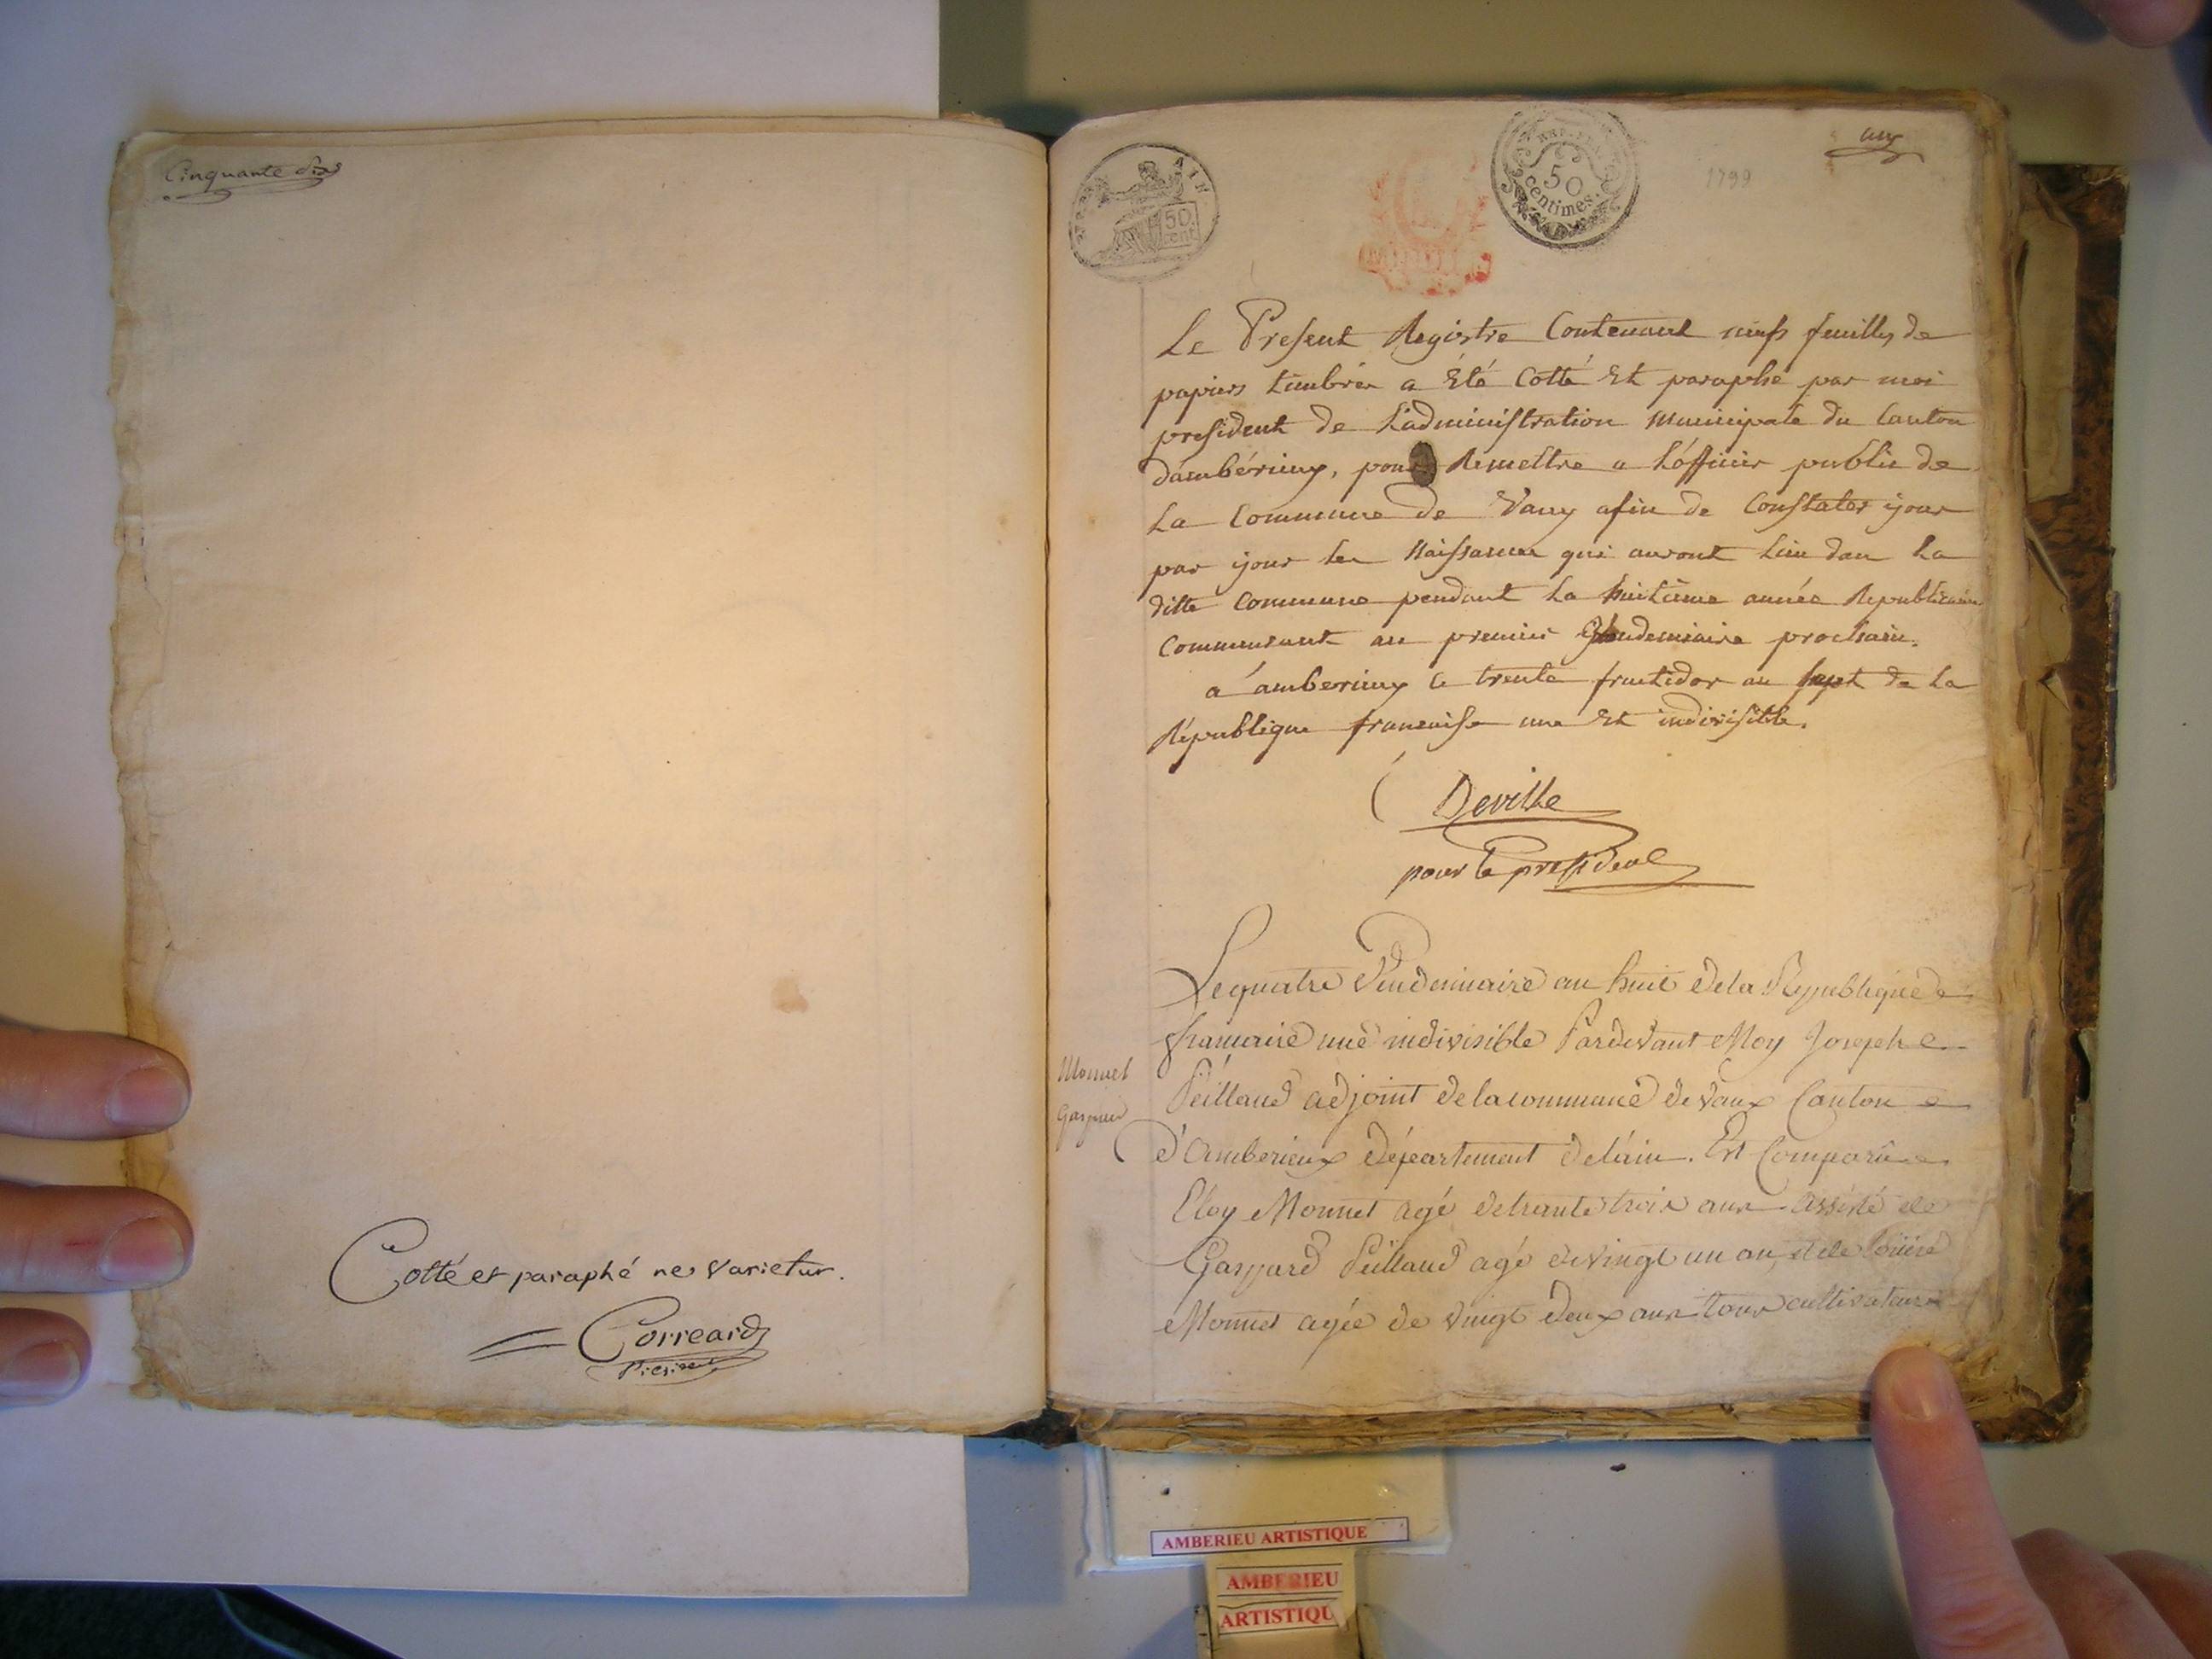 Cinquante six
Cotté et paraphé ne varietur.
Correard
Président
AIN
50
cent
REP. FRA
50
centimes.
1799
Le Present Registre Contenant neuf feuilles de
papiers timbrés a Été Cotté Et paraphé par moi
president de L'administration municipale du Canton
d'ambérieux, pour Remettre a L'officier public de
La Commune de Vaux afin de Constater jour
par jour les Naissances qui auront Lieu dans La
ditte Commune pendant La huitieme année Republicaine
Commensant au premier Vendemiaire prochain.
a amberieux le trente fructidor an sept de La
Republique francaise une Et indivisible.
Deville
pour le president
Le quatre Vendemiaire an huit de la Republique
francaise une indivisible Pardevant Moy Joseph
Monnet
Gaspard
Peilland adjoint de la commune de Vaux Canton
d'Amberieux département de l'ain. Est Comparu
Eloy Monnet agé de trante trois ans assisté de
Gaspard Peilland agé de vingt un an, et de Loüise
Monnet agée de vingt deux ans tous cultivateurs
AMBERIEU ARTISTIQUE
AMBERIEU
ARTISTIQU